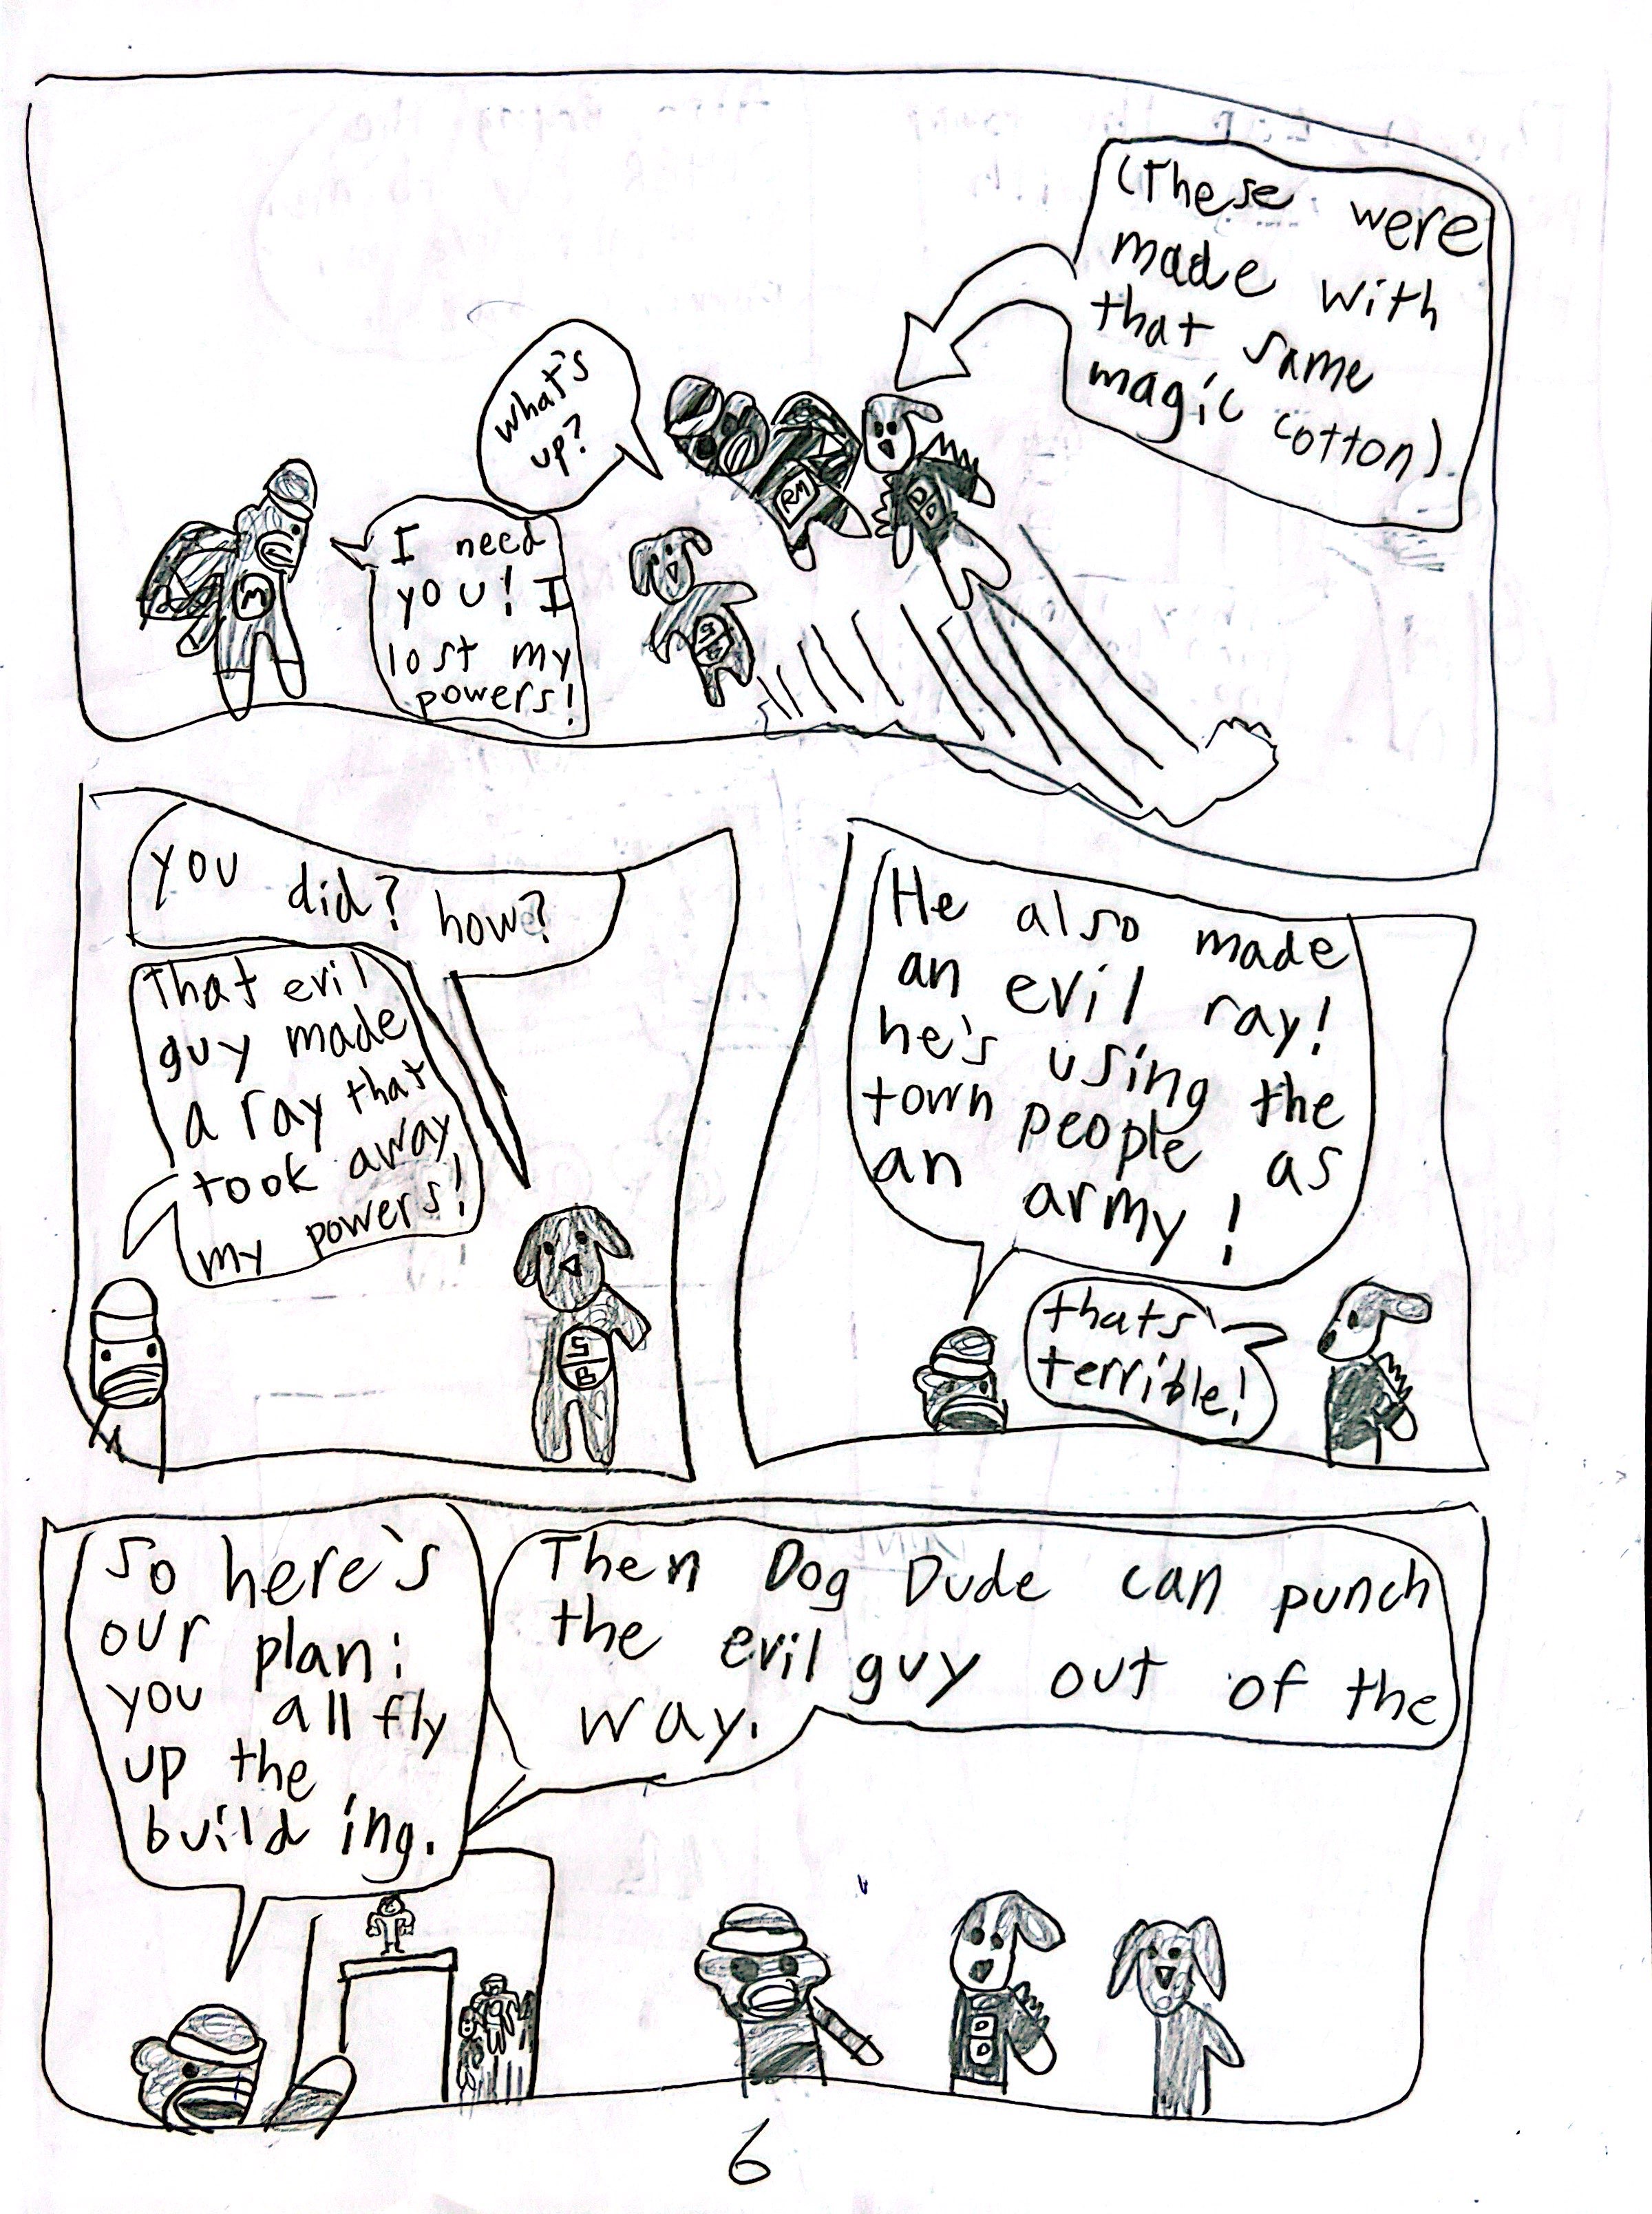 (These were
made with
that same
magic cotton)
What's
up?
I need
you! I
lost my
powers!
M
RM
D
D
S
B
you did? how?
That evil
guy made
a ray that
took away
my powers!
S
B
He also made
an evil ray!
he's using the
town people as
an army!
thats
terrible!
So here's
our plan:
you all fly
up the
build ing.
Then Dog Dude can punch
the evil guy out of the
way.
D
D
6